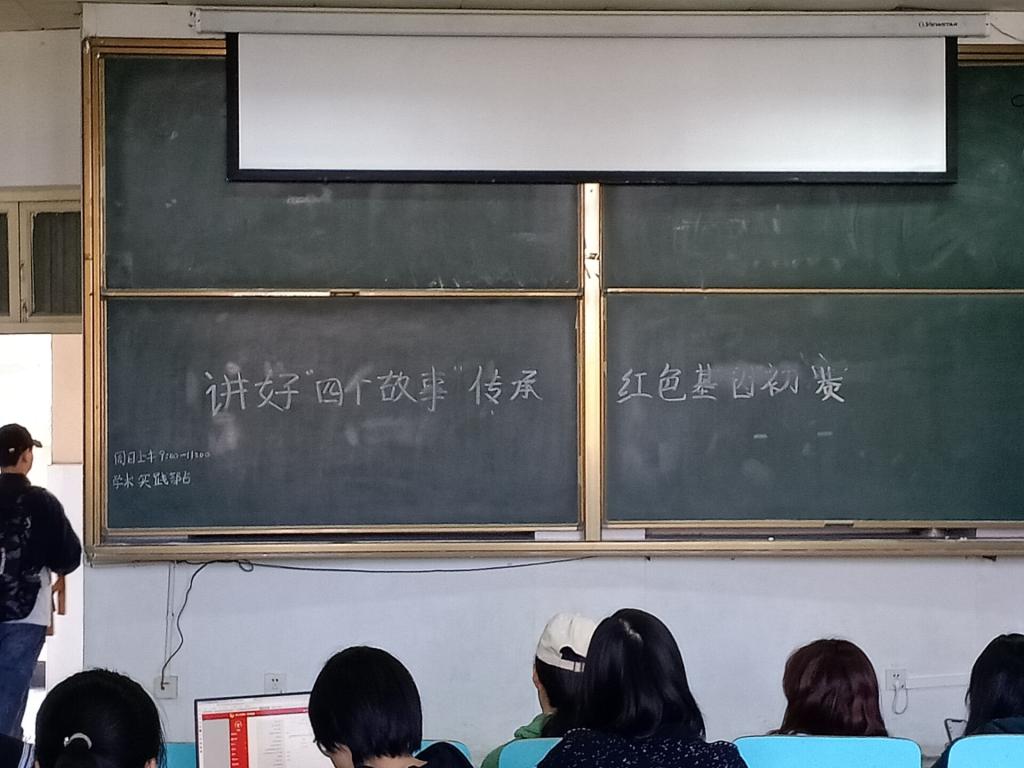 讲好"四个故事"传承 红色基因初赛
周日上午9:00-11:00
学术实践部占